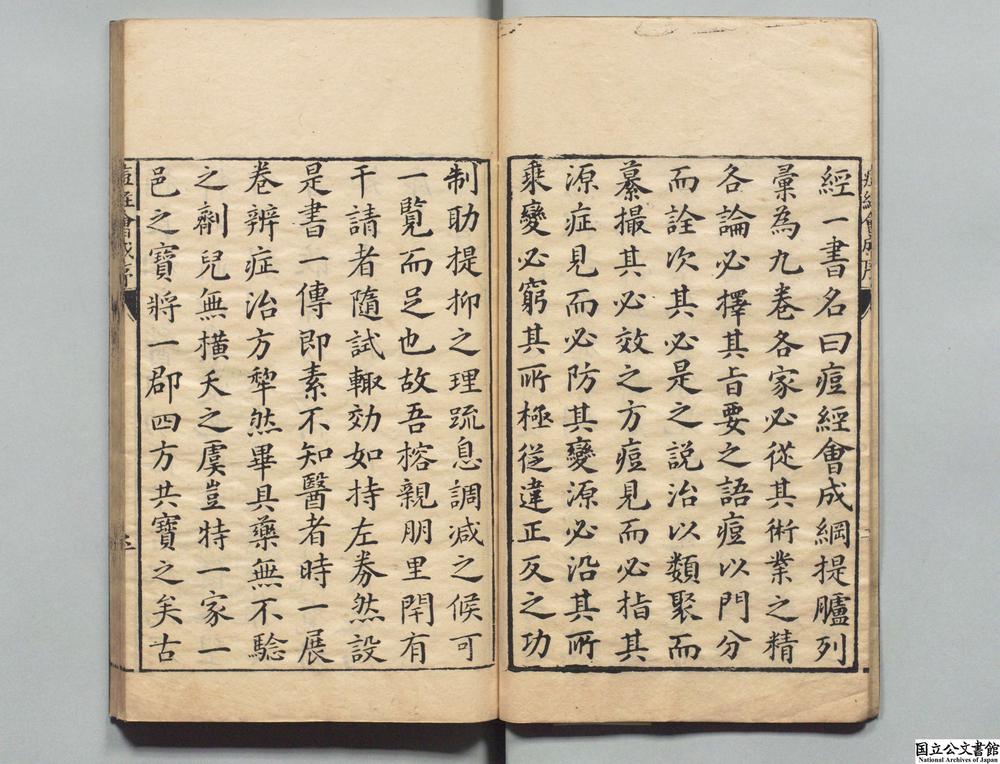 經一書名曰痘經會成綱提臚列
彙為九卷各家必從其術業之精
各論必擇其旨要之語痘以門分
而詮次其必是之說治以類聚而
纂撮其必效之方痘見而必指其
源症見而必防其變源必沿其所
乘變必窮其所極從違正反之功
制助提抑之理疏息調減之候可
一覽而足也故吾榕親朋里閈有
干請者隨試輙効如持左券然設
是書一傳即素不知醫者時一展
卷辨症治方犂然畢具藥無不騐
之劑兒無橫夭之虞豈特一家一
邑之寶將一郡四方共寶之矣古
痘經會成序
国立公文書館
National Archives of Japan